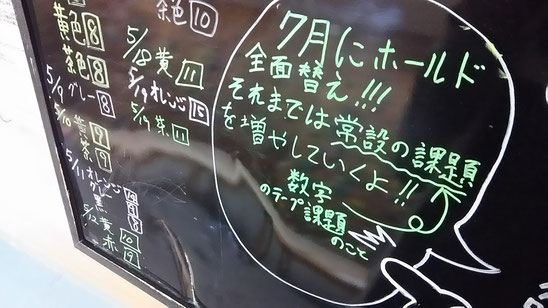 黄色 8
茶色 8
5/9 グレー 8
5/10 黄 9
茶 9
5/11 オレンジ
グレー
黒 8
5/12 黄 10
赤 19
茶色 10
5/18 黄 11
5/19 オレンジ 15
5/19 茶 11
7月にホールド
全面替え!!!
それまでは常設の課題
を増やしていくよ!!
数字
のテープ課題
のこと